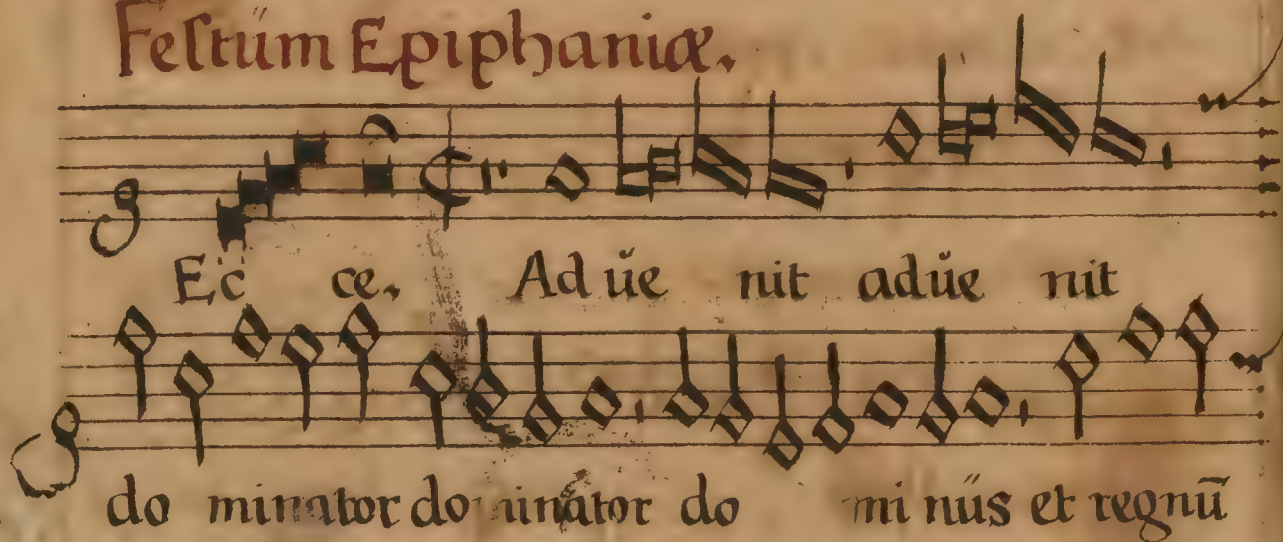 Festüm Epiphaniæ.
Ec ce. Ad üe nit adüe nit
do minator do minator do mi nüs et regnū